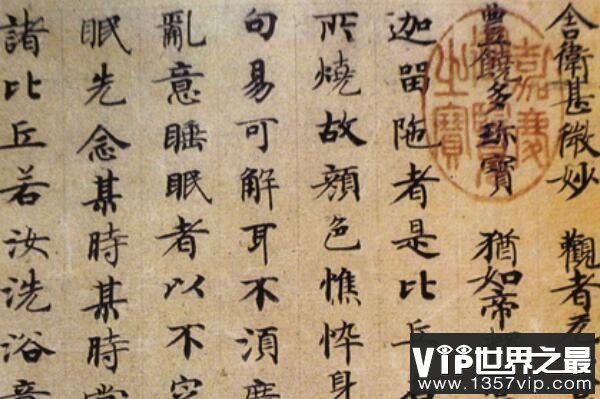 舍衛甚微妙 觀者
豐饒多珍寶 猶如帝
迦留陁者是比丘
所燒故顏色憔悴身
句易可解耳不須
亂意睡眠者以不
眠先念某時某時
諸比丘若汝洗浴
嘉慶
之寶
VIP世界之最
www.1357vip.com